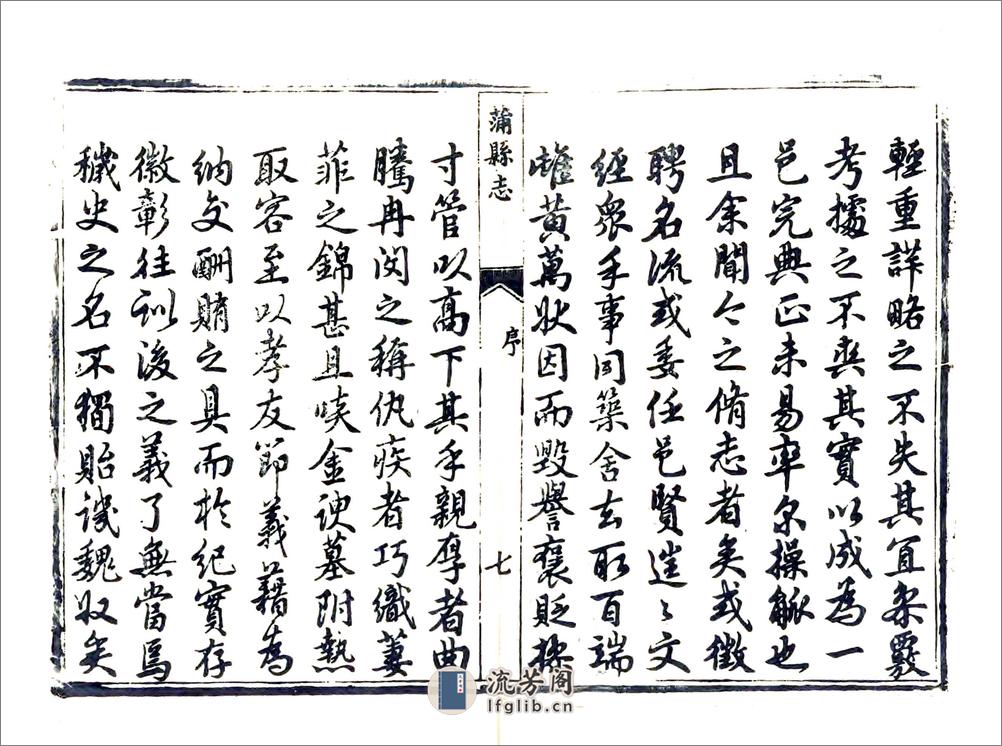 輕重詳略之不失其宜參覈
考據之不爽其實以成為一
邑完典正未易率尔操觚也
且余聞今之脩志者矣或徵
聘名流或委任邑賢進〻文
經衆手事同築舍去取百端
雌黃萬狀因而毀譽褒貶操
蒲縣志
序
七
寸管以高下其手親厚者曲
騰冉閔之稱仇疾者巧織萋
菲之錦甚且啖金諛墓附熱
取容至以孝友節義藉為
納交酬賄之具而於紀實存
徽彰往訓後之義了無當焉
穢史之名不獨貽譏魏收矣
流芳阁
lfglib.cn